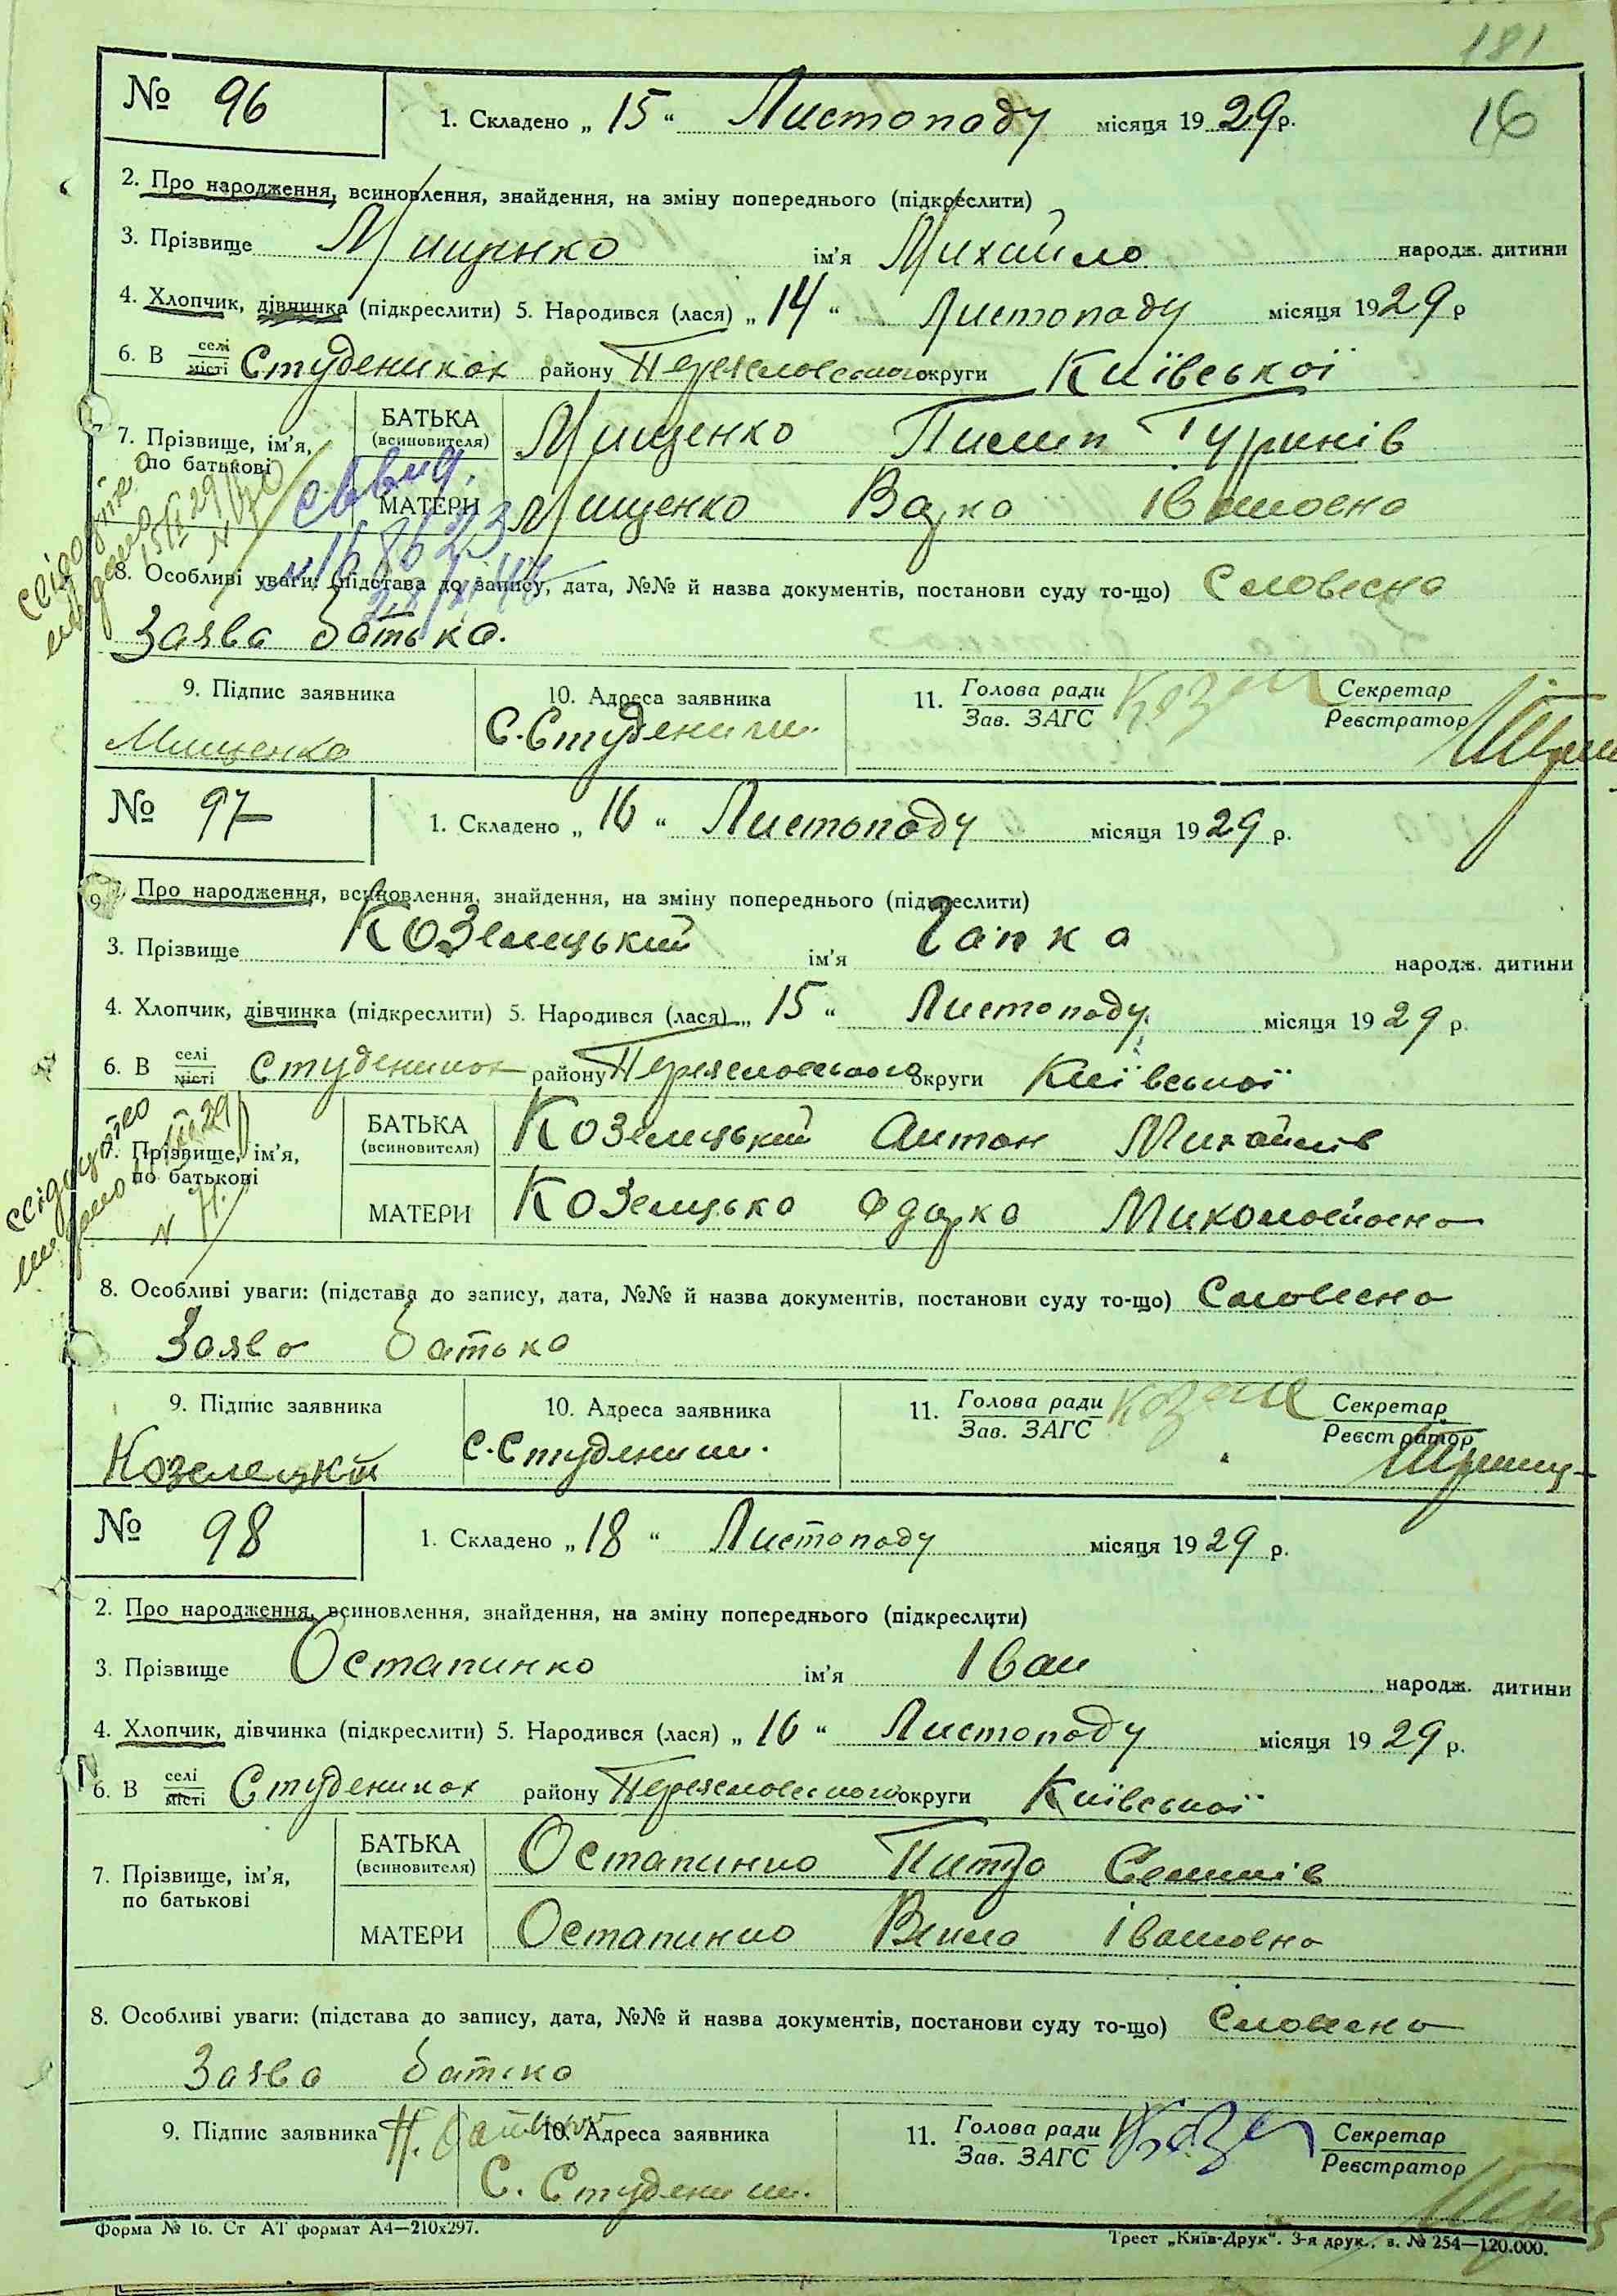 181
№ 96
1. Складено „ 15 “ Листопаду місяця 19 29 р.
16
2. Про народження, всиновлення, знайдення, на зміну попереднього (підкреслити)
3. Прізвище Мищенко ім'я Михайло народж. дитини
4. Хлопчик, дівчинка (підкреслити) 5. Народився (лася) „ 14 “ Листопаду місяця 19 29 р
6. В селі місті Студениках району Переяславського округи Київської
7. Прізвище, ім'я, по батькові
БАТЬКА (всиновителя) Мищенко Пилип
МАТЕРИ Мищенко Варка Івановна
8. Особливі уваги: (підстава до запису, дата, №№ й назва документів, постанови суду то-що) Словесна
Заява батька.
9. Підпис заявника
10. Адреса заявника
11. Голова ради Зав. ЗАГС
Секретар Реєстратор
Мищенко
С. Студеники.
№ 97
1. Складено „ 16 “ Листопаду місяця 19 29 р.
Про народження, всиновлення, знайдення, на зміну попереднього (підкреслити)
3. Прізвище Козелецький ім'я Гапка народж. дитини
4. Хлопчик, дівчинка (підкреслити) 5. Народився (лася) „ 15 “ Листопаду місяця 19 29 р.
6. В селі місті Студениках району Переяславського округи Київської
7. Прізвище, ім'я, по батькові
БАТЬКА (всиновителя) Козелецький Антон Михайлів
МАТЕРИ Козелецька Одарка Миколаївна
8. Особливі уваги: (підстава до запису, дата, №№ й назва документів, постанови суду то-що) Словесна
Заява батька
9. Підпис заявника
10. Адреса заявника
11. Голова ради Зав. ЗАГС
Секретар Реєстратор
Козелецкий
С. Студеники.
№ 98
1. Складено „ 18 “ Листопаду місяця 19 29 р.
2. Про народження, всиновлення, знайдення, на зміну попереднього (підкреслити)
3. Прізвище Остапинко ім'я Іван народж. дитини
4. Хлопчик, дівчинка (підкреслити) 5. Народився (лася) „ 16 “ Листопаду місяця 19 29 р.
6. В селі місті Студениках району Переяславського округи Київської
7. Прізвище, ім'я, по батькові
БАТЬКА (всиновителя) Остапинко
МАТЕРИ Остапинко Івановна
8. Особливі уваги: (підстава до запису, дата, №№ й назва документів, постанови суду то-що) Словесна
Заява батька
9. Підпис заявника
10. Адреса заявника
11. Голова ради Зав. ЗАГС
Секретар Реєстратор
С. Студеники.
Форма № 16. Ст АТ формат А4—210х297.
Трест „Київ-Друк“. 3-я друк., з. № 254—120.000.